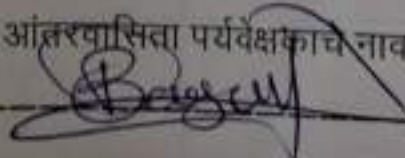 आंतरवासिता पर्यवेक्षकाचे नाव